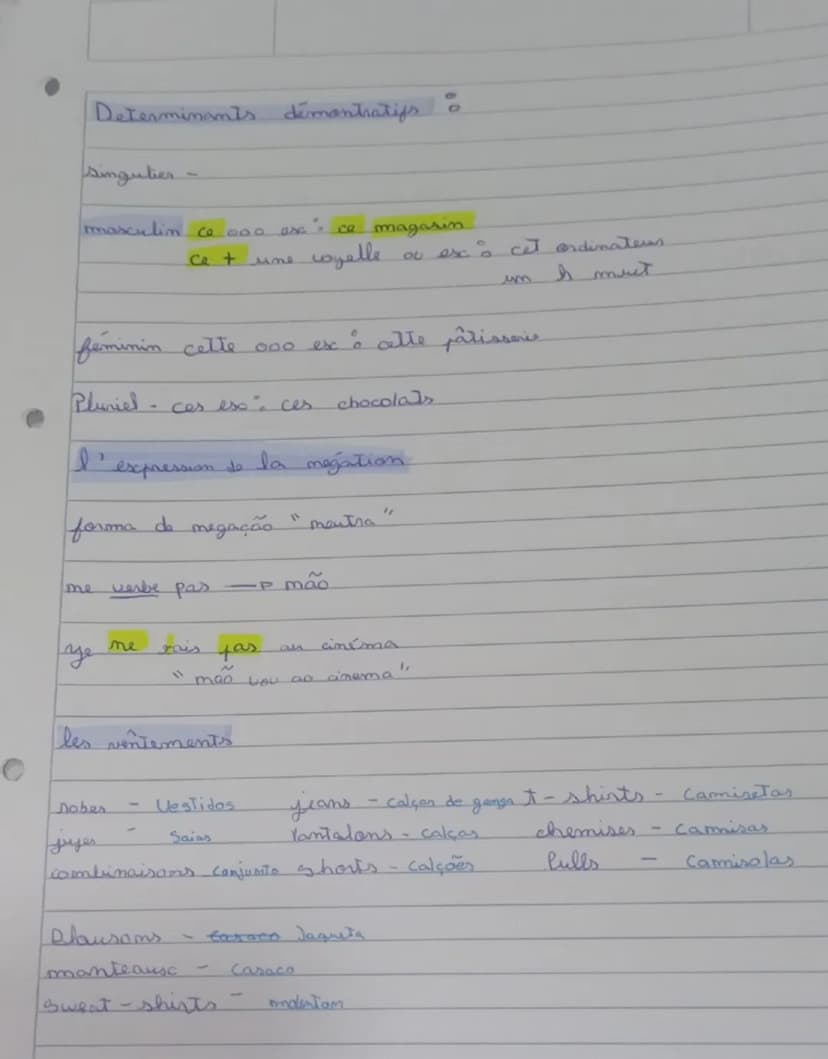 Determinants démontratifs :
singulier -
masculin ce ooo ex: ce magasin
ce + une voyelle ou ex: cet ordinateur
un h muet
féminin cette ooo ex: cette pâtisserie
Pluriel - ces ex: ces chocolats
l'expression de la négation
forma de negação "neutra"
ne verbe pas → não
Je ne vais pas au cinéma
"não vou ao cinema"
les vêtements
robes - Vestidos jeans - calças de ganga t-shirts - camisetas
jupes - Saias Pantalons - calças chemises - camisas
combinaisons conjunto shorts - calções Pulls - camisolas
Blousons - casaco Jaqueta
manteaux - casaco
sweat-shirts -